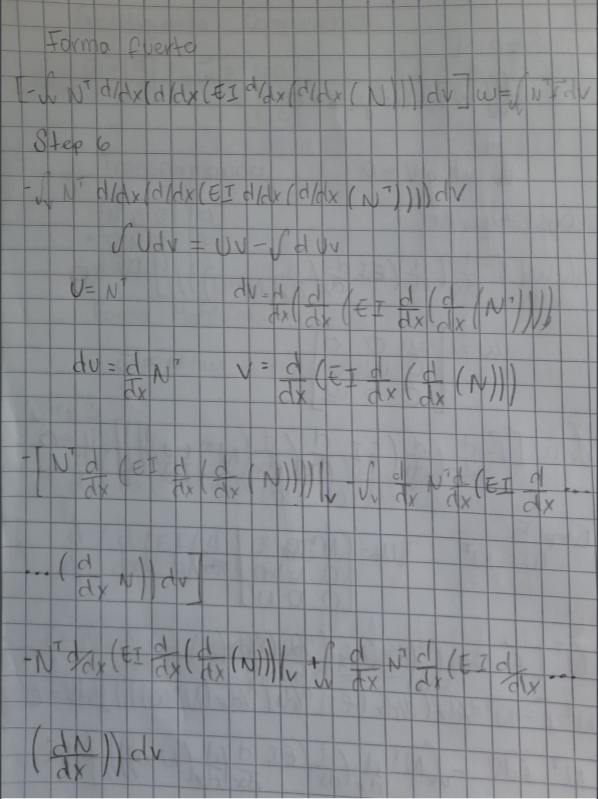 Forma fuerte
[-∫ᵥ Nᵀ d/dx(d/dx(EI d/dx(d/dx(N))))dv]w=∫ᵥNᵀFdv
Step 6
-∫ᵥ Nᵀ d/dx(d/dx(EI d/dx(d/dx(Nᵀ))))dv
∫Udv = UV-∫dUv
U= Nᵀ dv= d/dx(d/dx(EI d/dx(d/dx(Nᵀ))))
dU= d/dx Nᵀ V= d/dx(EI d/dx(d/dx(N)))
-[Nᵀ d/dx(EI d/dx(d/dx(N))))|ᵥ -∫ᵥ d/dx Nᵀ d/dx(EI d/dx ...
...(d/dx N))dv]
-Nᵀ d/dx(EI d/dx(d/dx(N)))|ᵥ +∫ᵥ d/dx Nᵀ d/dx(EI d/dx ...
(dN/dx))dv